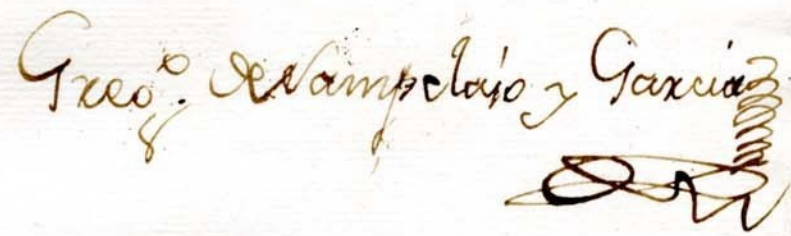 Greg.º de Sampelaio y Garcia